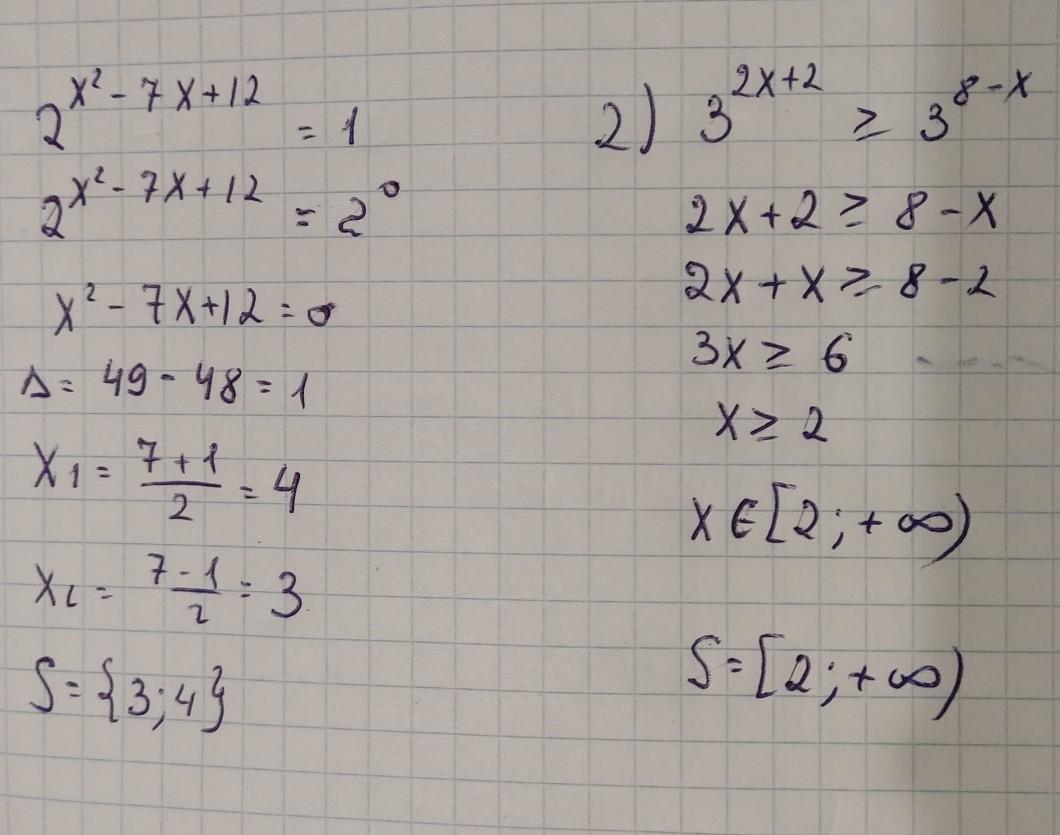 2^{x²-7x+12} = 1
2^{x²-7x+12} = 2⁰
x² - 7x + 12 = 0
Δ = 49 - 48 = 1
x₁ = \frac{7+1}{2} = 4
x₂ = \frac{7-1}{2} = 3
S = {3; 4}
2) 3^{2x+2} ≥ 3^{8-x}
2x + 2 ≥ 8 - x
2x + x ≥ 8 - 2
3x ≥ 6
x ≥ 2
x ∈ [2; +∞)
S = [2; +∞)